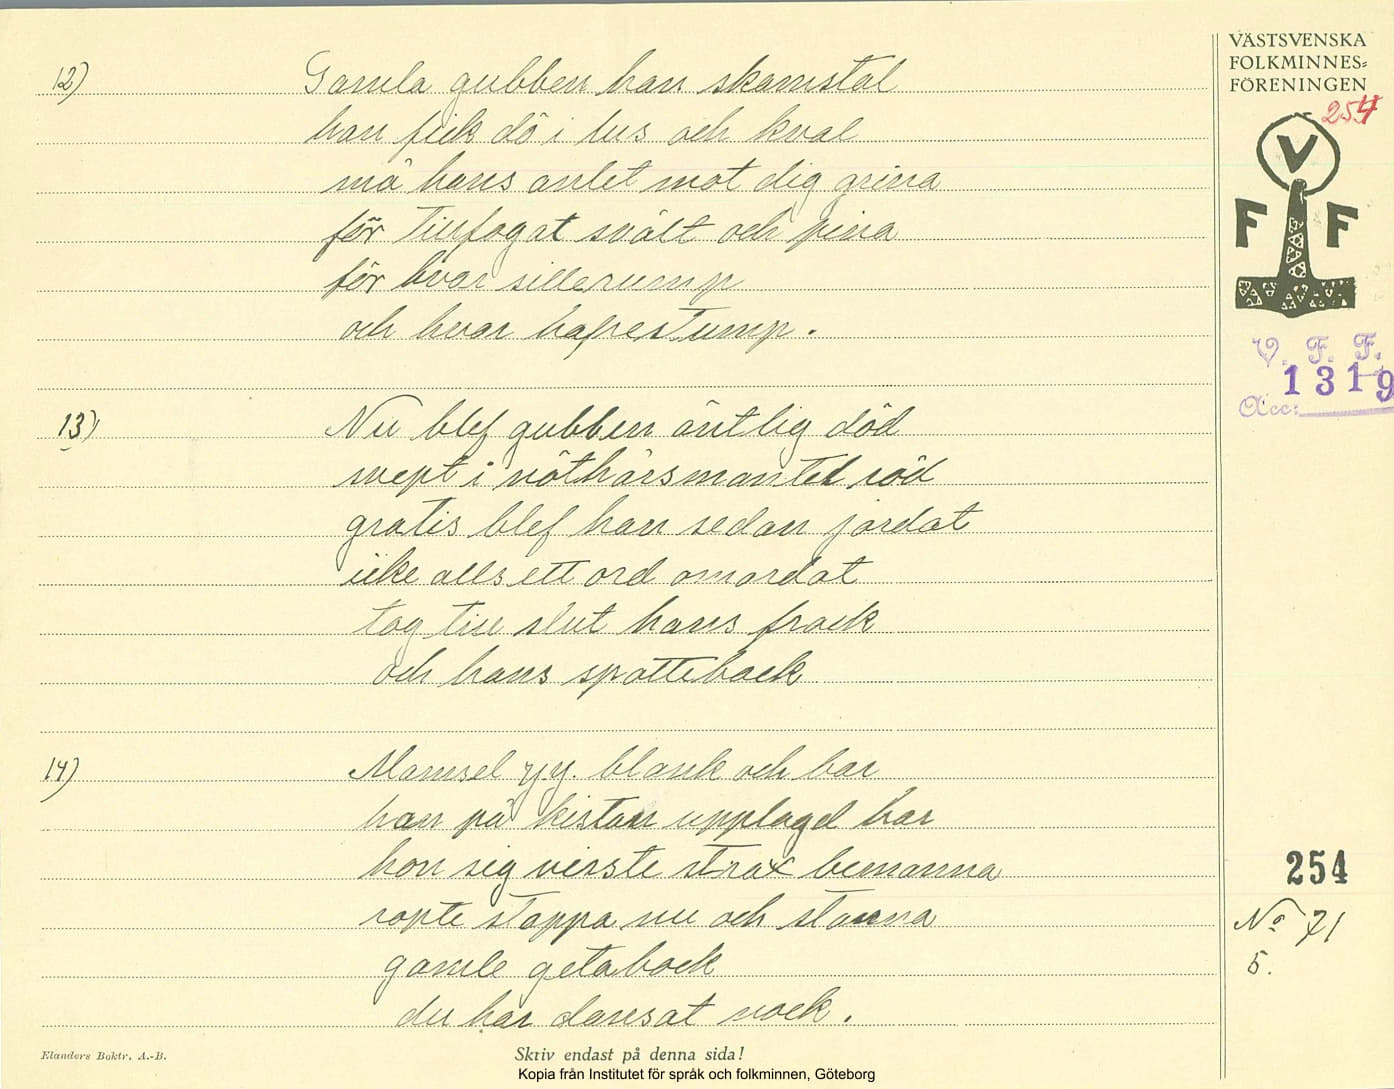 VÄSTSVENSKA
FOLKMINNES=
FÖRENINGEN
254
V
F F
V. F. F.
1319
Acc:
12) Gamla gubben han skamstal
han fick dö i lus och kval
må hans anlet mot dig grina
för tillfogat svält och pina
för hvar sillarump
och hvar hafrestump.
13) Nu blef gubben äntlig död
svept i nöthårsmantel röd
gratis blef han sedan jordat
icke alls ett ord omordat
tog till slut hans frack
och hans spotteback
14) Mamsel yy. blank och bar
han på kistan upplagd har
hon sig visste strax bemanna
ropte stoppa nu och stanna
gamle getabock
du har dansat nock.
254
No 71
5.
Elanders Boktr. A.-B.
Skriv endast på denna sida!
Kopia från Institutet för språk och folkminnen, Göteborg